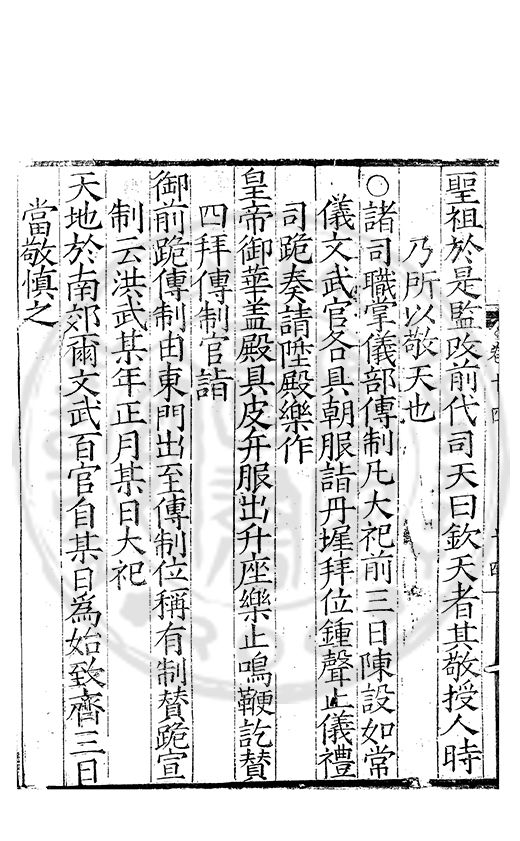 聖祖於是監改前代司天曰欽天者其敬授人時
乃所以敬天也
○諸司職掌儀部傳制凡大祀前三日陳設如常
儀文武官各具朝服詣丹墀拜位鍾聲止儀禮
司跪奏請陞殿樂作
皇帝御華盖殿具皮弁服出升座樂止鳴鞭訖贊
四拜傳制官詣
御前跪傳制由東門出至傳制位稱有制贊跪宣
制云洪武某年正月某日大祀
天地於南郊爾文武百官自某日為始致齊三日
當敬慎之